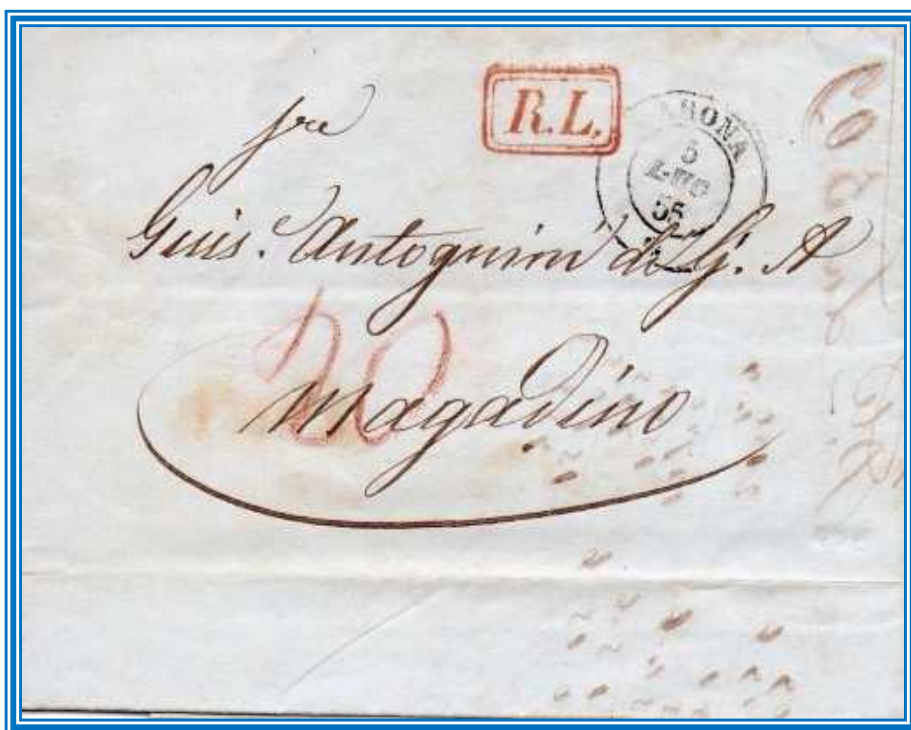 R.L.
ARONA
5
LUG
55
Guis. Antognini di G. A
20
Magadino